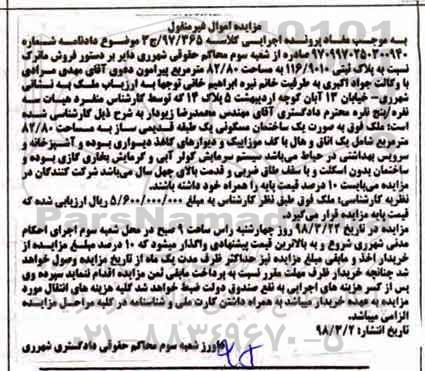 مزایده اموال غیرمنقول
به موجب مفاد پرونده اجرایی کلاسه ۹۷/۳۶۵/ج۳ موضوع دادنامه شماره
۹۷۰۹۹۷۰۲۵۰۳۰۰۹۴۰ صادره از شعبه سوم محاکم حقوقی شهرری دایر بر دستور فروش ماترک
نسبت به پلاک ثبتی ۱۱۶/۹۰۱۰ به مساحت ۸۲/۸۰ مترمربع پیرامون دعوی آقای مهدی مرادی
با وکالت جواد اکبری به طرفیت خانم نیره ابراهیم خانی توجها به ارزیاب ملک به نشانی
شهرری - خیابان ۱۳ آبان کوچه اردیبهشت ۵ پلاک ۱۴ که توسط کارشناس منفرد هیات سه
نفره/پنج نفره محترم دادگستری آقای مهندس محمدرضا زیودار به شرح ذیل کارشناسی شده
است: ملک فوق به صورت یک ساختمان مسکونی یک طبقه قدیمی ساز به مساحت ۸۲/۸۰
مترمربع شامل یک اتاق و هال با کف موزاییک و دیوارهای کاغذ دیواری بوده و آشپزخانه و
سرویس بهداشتی در حیاط می‌باشد سیستم سرمایش کولر آبی و گرمایش بخاری گازی بوده و
ساختمان بدون اسکلت و با سقف طاق ضربی و قدمت بالای چهل سال می‌باشد شرکت کنندگان در
مزایده می‌بایست ۱۰ درصد قیمت پایه را همراه خود داشته باشند.
نظریه کارشناسی: ملک فوق طبق نظر کارشناسی به مبلغ ۵/۶۰۰/۰۰۰/۰۰۰ ریال ارزیابی شده که
قیمت پایه مزایده قرار می‌گیرد.
مزایده در تاریخ ۹۸/۳/۲۲ روز چهارشنبه راس ساعت ۹ صبح در محل شعبه سوم اجرای احکام
مدنی شهرری شروع و به بالاترین قیمت پیشنهادی واگذار میشود که ۱۰ درصد مبلغ مزایده از
خریدار اخذ و مابقی مبلغ مزایده نیز حداکثر ظرف مدت یک ماه از تاریخ مزایده وصول خواهد
شد چنانچه خریدار ظرف مهلت مقرر نسبت به پرداخت مابقی ثمن مزایده اقدام ننماید سپرده وی
پس از کسر هزینه های اجرایی به نفع صندوق دولت ضبط خواهد شد کلیه هزینه های انتقال مورد
مزایده به عهده خریدار میباشد به همراه داشتن کارت ملی و شناسنامه در کلیه مراحل مزایده
الزامی میباشد.
تاریخ انتشار: ۹۸/۳/۲
دادورز شعبه سوم محاکم حقوقی دادگستری شهرری
ParsNamadData
۰۲۱-۸۸۳۴۹۶۷۰-۵